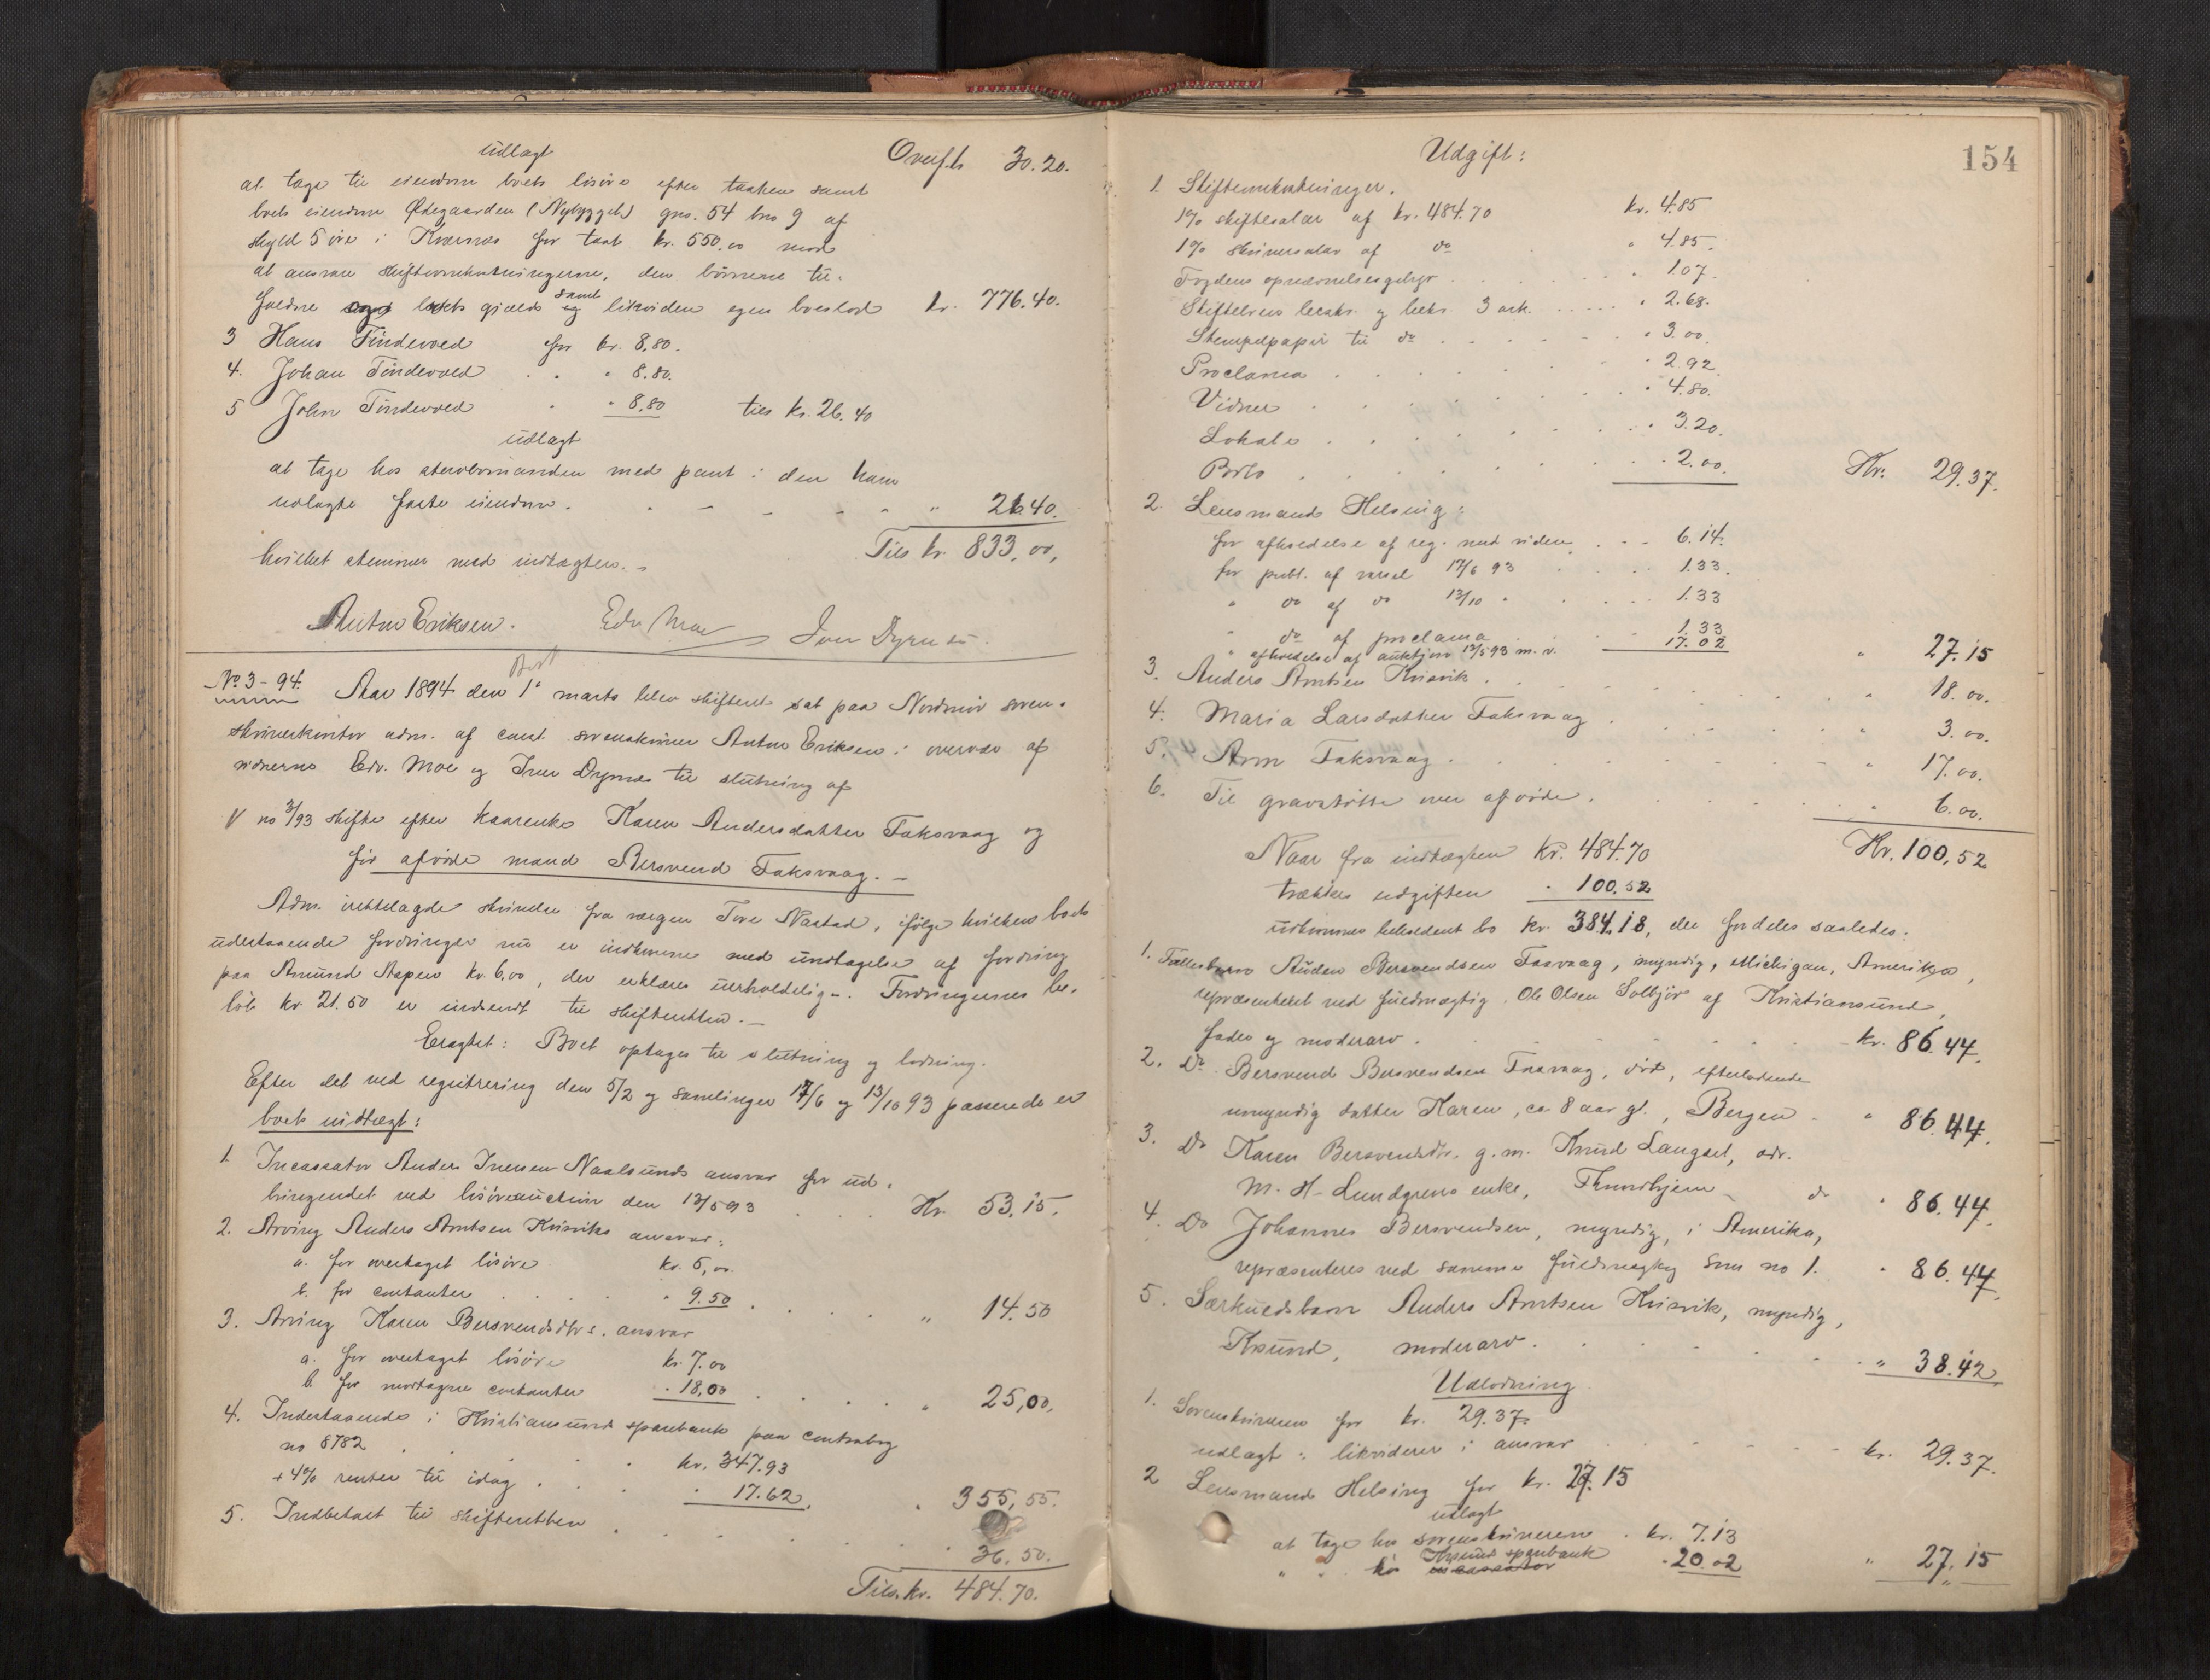 Overf.ts 30.20.
udlagt
at tage til eiendom boets lösöre efter taxten samt
boets eiendom Ødegaarden (Nybygget) gno. 54 bno 9 af
skyld 5 öre i Kvernes for taxt kr. 550.00 mod
at ansvare skifteomkostningerne, den börnene til-
faldne boets gjæld samt likvidere egen boeslod kr. 776.40.
3 Hans Tindevold for kr. 8,80.
4. Johan Tindevold . . " 8.80.
5 John Tindevold . " 8,80 tils kr. 26.40
udlagt
at tage hos stervbomanden med pant i den ham
udlagte faste eiendom. . - - - " " 26.40.
Tils kr. 833,00,
hvilket stemmer med indtægten. -
Anton Eriksen. Edv Moe Iver Dyrnes.
No. 3-94. Aar 1894 den 1ste marts blev skifteret sat paa Nordmör soren-
skriverkontor adm. af const. sorenskriver Anton Eriksen i overvær af
vidnerne Edv. Moe og Iver Dyrnes til slutning af
V no 3/93 skifte efter kaarenke Karen Andersdatter Faksvaag og
för afdöde mand Bersvend Faksvaag. -
Adm. irettelagde skrivelse fra værgen Tore Nastad, ifölge hvilken boets
udestaaende fordringer nu er indkomne med undtagelse af fordring
paa Amund Aspen kr. 6.00, der erklæres uerholdelig -. Fordringernes be-
löb kr 21.50 er indsendt til skifteretten. -
Eragtet: Boet optages til slutning og lodning.
Efter det ved registrering den 5/2 og samlinger 17/6 og 13/10 93 passerede er
boets indtægt:
1. Incassator Anders Iversen Naalsunds ansvar for ud-
bringendet ved lösöreauction den 13/5 93 . . . Kr. 53.15.
2. Arving Anders Arntsen Krisviks ansvar:
a. for overtaget lösöre kr. 5,00.
b. for contanter . . . . " 9.50 . . . . " 14.50
3. Arving Karen Bersvendsdtrs. ansvar
a. for overtaget lösöre kr. 7.00
b. for modtagne contanter " 18,00 . . . . " 25,00,
4. Indestaaende i Kristiansund sparebank paa contrabog
no 8782 . . . kr. 347.93
+ 4% renter til idag . . . " 17.62. " 355,55.
5. Indbetalt til skifteretten . . . . . . 36.50.
Tils. kr. 484.70.
154
Udgift:
1. Skifteomkostninger.
1% skiftesalær af kr. 484.70 kr. 4.85
1% skriversalær af do " 4.85.
Fogdens opnævnelsesgebyr . . . . . " 1.07.
Skiftebrevs beskr. og bekr. 3 ark. . . . . " 2.68.
Stempelpapir til do . . . . . " 3.00.
Proclama . . . . . . " 2.92.
Vidner . . . . . . " 4.80.
Lokale . . . . . . " 3.20.
Porto . . . . . . 2.00. Kr. 29.37.
2. Lensmand Helsing:
for afholdelse af reg. med viden . . - 6.14.
for publ. af varsel 17/6 93 . . . 1.33.
" do af do 13/10 " . . . 1.33
" do af proclama . . . 1.33
" afholdelse af auktion 13/5 93 m. v. 17.02 " 27.15
3. Anders Arntsen Krisvik . . . . . " 18.00.
4. Maria Larsdatter Faksvaag . . . . " 3.00.
5. Arn Faksvaag . . . . . . " 17.00.
6. Til gravstötte over afdöde. . . . . " 6.00.
Kr. 100,52
Naar fra indtægten kr. 484.70
trækkes udgiften " 100.52
udkommer beholdent bo kr. 384.18, der fordeles saaledes:
1. Fællesbarn Auden Bersvendsen Faxvaag, myndig, Michigan, Amerika,
repræsenteret ved fuldmægtig Ole Olsen Solbjör af Kristiansund,
fader og moderarv . . . . kr. 86.44.
2. Do. Bersvend Bersvendsen Faxvaag, död, efterladende
umyndig datter Karen, ca 8 aar gl., Bergen . " 86.44.
3. Do Karen Bersvendsdtr. g. m. Knud Langset, adr.
M. H. Lundgrens enke, Throndhjem do " 86.44.
4. Do Johannes Bersvendsen, myndig, i Amerika,
repræsenteres ved samme fuldmægtig som no 1. " 86.44.
5. Særkuldsbarn Anders Arntsen Krisvik, myndig,
Ksund, moderarv . . . . . " 38.42
Udlodning
1. Sorenskriveren for kr. 29.37.
udlagt: likviderer i ansvar . . . . kr. 29.37.
2 Lensmand Helsing for kr. 27.15
udlagt
at tage hos sorenskriveren . kr. 7.13
" " hos Ksund sparebank " 20.02 " 27.15